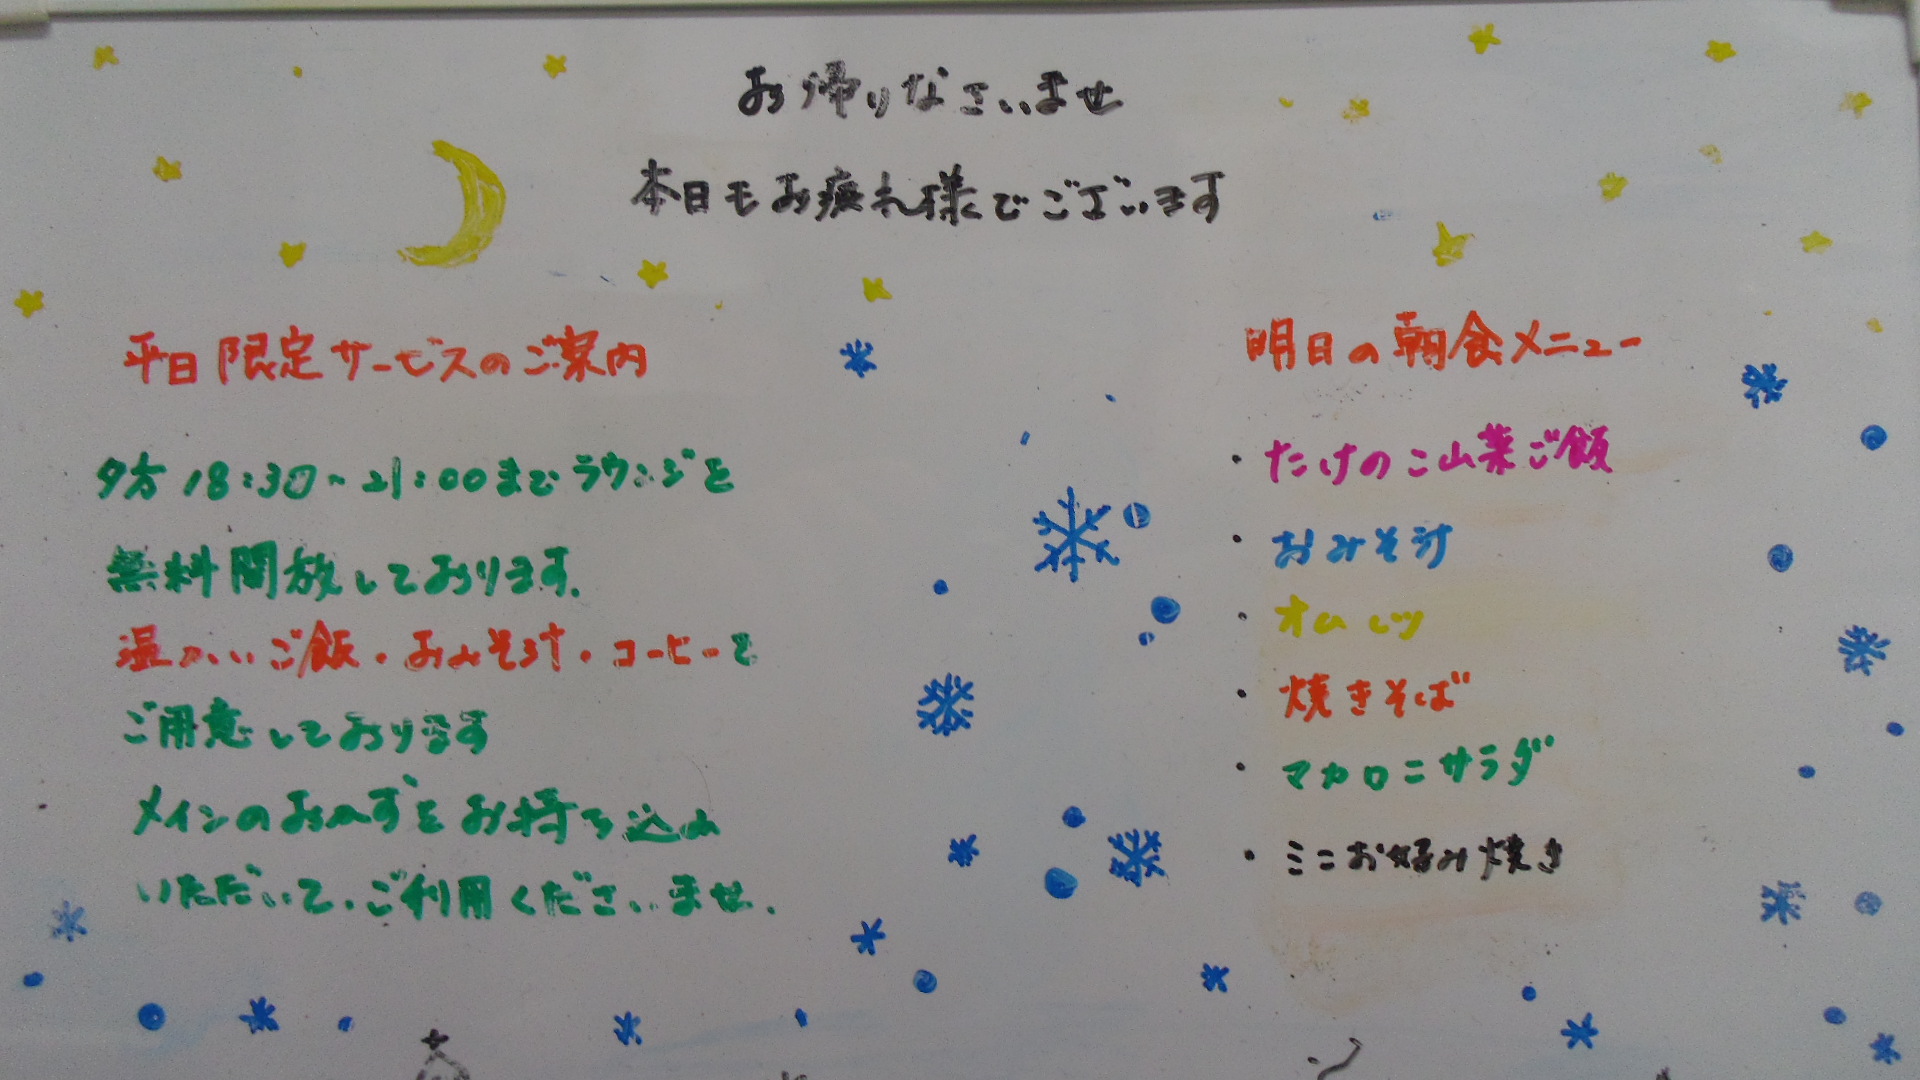 お帰りなさいませ
本日もお疲れ様でございます
平日限定サービスのご案内
夕方 18:30~21:00までラウンジを
無料開放しております.
温かいご飯・おみそ汁・コーヒーを
ご用意しております
メインのおかずをお持ち込み
いただいて、ご利用くださいませ.
明日の朝食メニュー
・たけのこ山菜ご飯
・おみそ汁
・オムレツ
・焼きそば
・マカロニサラダ
・ミニお好み焼き